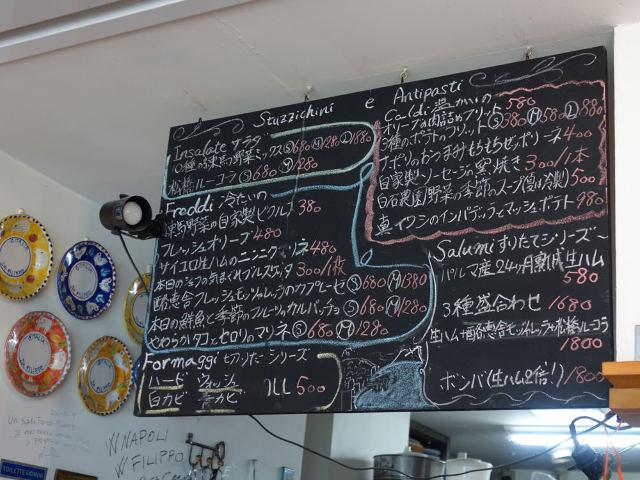 Stuzzichini e Antipasti
Insalate サラダ
10種の東京野菜ミックス Ⓢ680 Ⓜ1280 Ⓛ1880
松橋ルーコラ Ⓢ680 Ⓜ1280
Freddi 冷たいの
練馬野菜の自家製ピクルス 380
フレッシュオリーブ 480
サイコロ生ハムのニンニクマリネ 480
本日のシェフの気まぐれブルスケッタ 300/1枚
酪恵舎フレッシュモッツァレッラのカプレーゼ Ⓢ680 Ⓜ1380
本日の鮮魚と季節のフルーツのカルパッチョ Ⓢ680 Ⓜ1280
やわらかタコとセロリのマリネ Ⓢ680 Ⓜ1280
Formaggi セツのたてシリーズ
ハード ウォッシュ
白カビ 青カビ
ALL 500
Caldi 温かいの
オリーブの肉詰めフリット 580
3種のポテトのフリット Ⓢ380 Ⓜ580 Ⓛ880
ナポリのおつまみもちもちゼッポリーネ 400
自家製ソーセージの窯焼き 300/1本
白石農園野菜の季節のスープ(夏は冷製) 500
真イワシのインパデッラとマッシュポテト 980
Salumi すりたてシリーズ
パルマ産24ヶ月熟成生ハム
580
3種盛合わせ 1680
生ハム酪恵舎モッツァレッラ松橋ルーコラ
1800
ボンバ(生ハム2倍!) 1800
ITALIA
NAPOLI
FILIPPO
TOILETTE